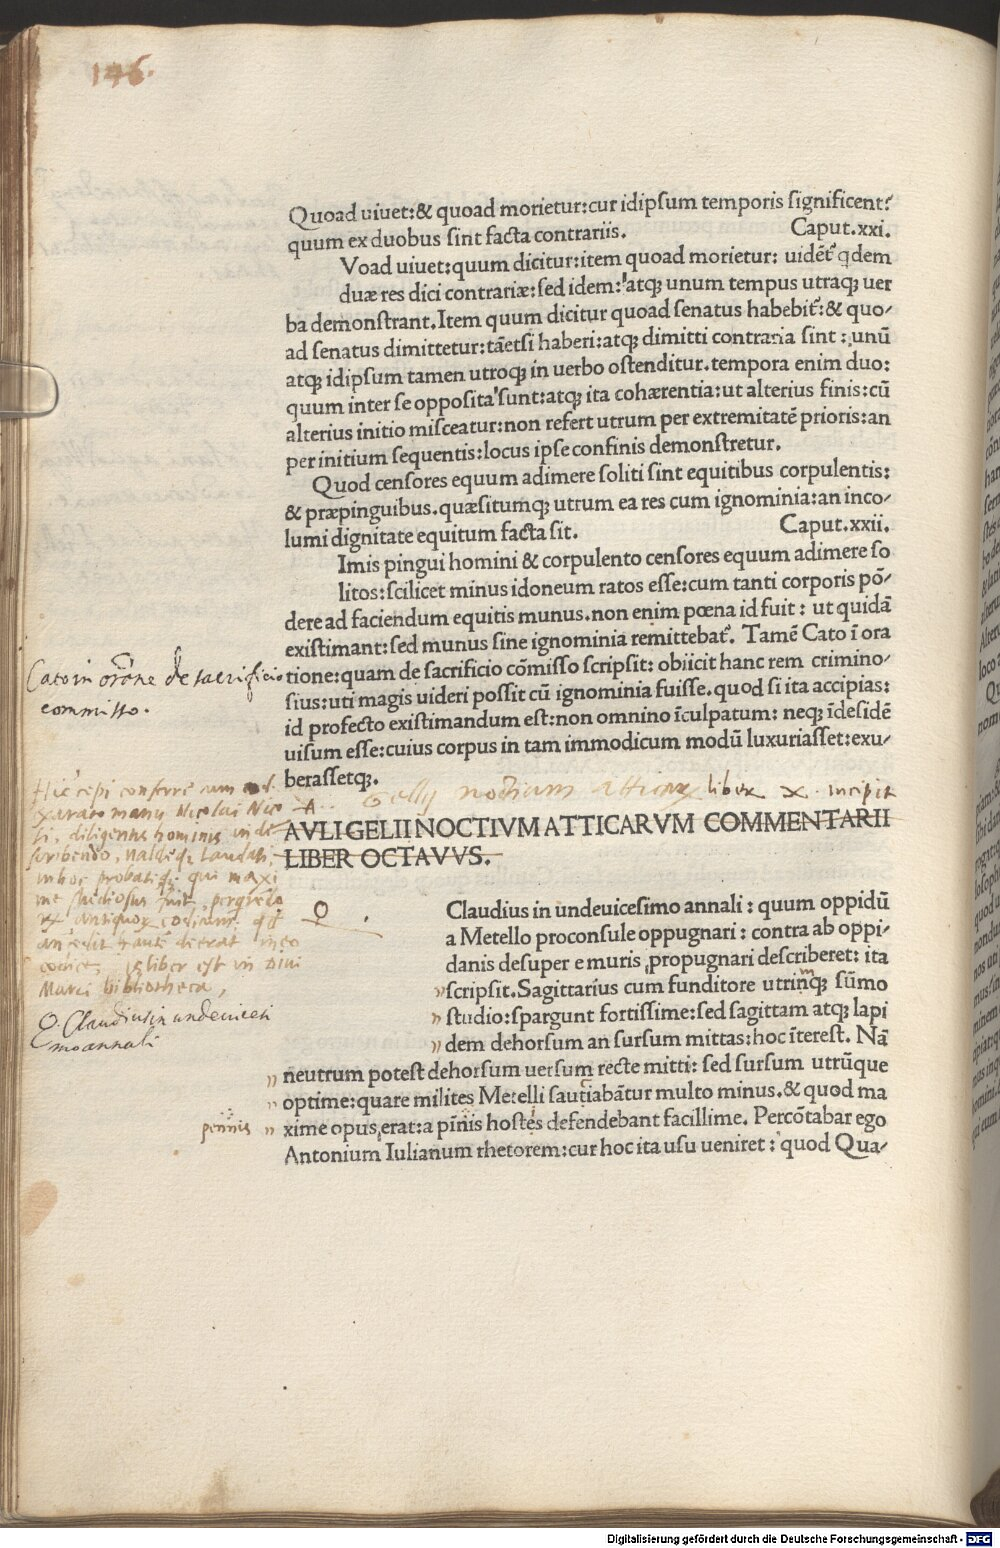 146.
Quoad uiuet:& quoad morietur:cur idipſum temporis ſignificent?
quum ex duobus ſint facta contrariis. Caput.xxi.
Voad uiuet:quum dicitur:item quoad morietur: uidēt᷑ qdem
duæ res dici contrariæ:ſed idem:atq; unum tempus utraq; uer
ba demonſtrant.Item quum dicitur quoad ſenatus habebit᷑:& quo⸗
ad ſenatus dimittetur:tāetſi haberi:atq; dimitti contraria ſint : unū
atq; idipſum tamen utroq; in uerbo oſtenditur.tempora enim duo:
quum inter ſe oppoſita ſunt:atq; ita cohærentia:ut alterius finis:cū
alterius initio miſceatur:non refert utrum per extremitatē prioris:an
per initium ſequentis:locus ipſe confinis demonſtretur.
Quod cenſores equum adimere ſoliti ſint equitibus corpulentis:
& præpinguibus.quæſitumq; utrum ea res cum ignominia:an inco⸗
lumi dignitate equitum facta ſit. Caput.xxii.
Imis pingui homini & corpulento cenſores equum adimere ſo
litos:ſcilicet minus idoneum ratos eſſe:cum tanti corporis pō⸗
dere ad faciendum equitis munus.non enim pœna id fuit : ut quidā
exiſtimant:ſed munus ſine ignominia remittebat᷑. Tamē Cato ī ora
tione:quam de ſacrificio cōmiſſo ſcripſit: obiicit hanc rem crimino⸗
ſius:uti magis uideri poſſit cū ignominia fuiſſe.quod ſi ita accipias:
id profecto exiſtimandum eſt:non omnino īculpatum: neq; īdeſidē
uiſum eſſe:cuius corpus in tam immodicum modū luxuriaſſet:exu⸗
beraſſetq;.
Cato in orōne de sacrificio
commisso.
A. Gellij noctium atticarꝝ liber X. incipit
AVLI GELII NOCTIVM ATTICARVM COMMENTARII
LIBER OCTAVVS.
Hic cepi conferre cum
exarato manu Nicolai Nico
li, diligentis hominis in de
scribendo, ualdeq; laudati,
inhoc probatiq; qui maxi
me studiosus fuit
antiquoꝝ codicum
codice, liber est in Diui
Marci bibliotheca,
Q. Claudius in undeuicesi
mo annali
Q .
Claudius in undeuiceſimo annali : quum oppidū
a Metello proconſule oppugnari : contra ab oppi⸗
danis deſuper e muris propugnari deſcriberet: ita
ſcripſit.Sagittarius cum funditore utrinq; ſūmo
m
ſtudio:ſpargunt fortiſſime:ſed ſagittam atq; lapi
dem dehorſum an ſurſum mittas:hoc īterest. Nā
neutrum potest dehorſum uerſum recte mitti: ſed ſurſum utrūque
optime:quare milites Metelli ſautiabātur multo minus.& quod ma
xime opus erat:a pīnis hoſtes defendebant facillime. Percōtabar ego
pennis
Antonium Iulianum rhetorem:cur hoc ita uſu ueniret : quod Qua⸗
Digitalisierung gefördert durch die Deutsche Forschungsgemeinschaft - DFG